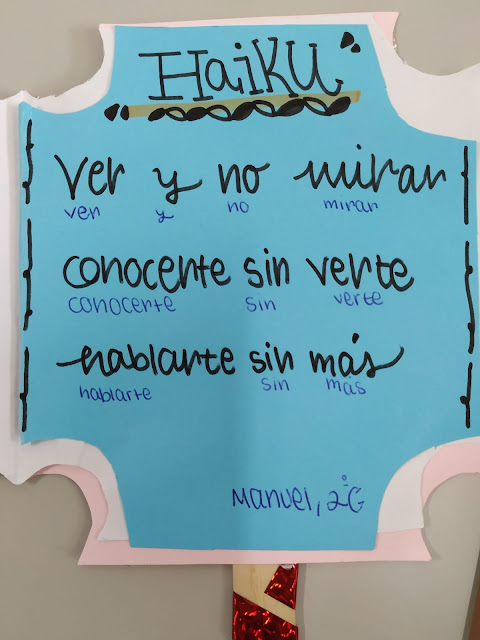 HaiKU
ver y no mirar
ver y no mirar
conocerte sin verte
conocerte sin verte
hablarte sin más
hablarte sin mas
Manuel, 2ºG